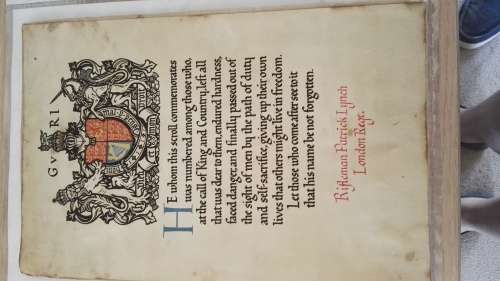 GVRI
HE whom this scroll commemorates
was numbered among those who,
at the call of King and Country, left all
that was dear to them, endured hardness,
faced danger, and finally passed out of
the sight of men by the path of duty
and self-sacrifice, giving up their own
lives that others might live in freedom.
Let those who come after see to it
that his name be not forgotten.
Rifleman Patrick Lynch
London Regt.